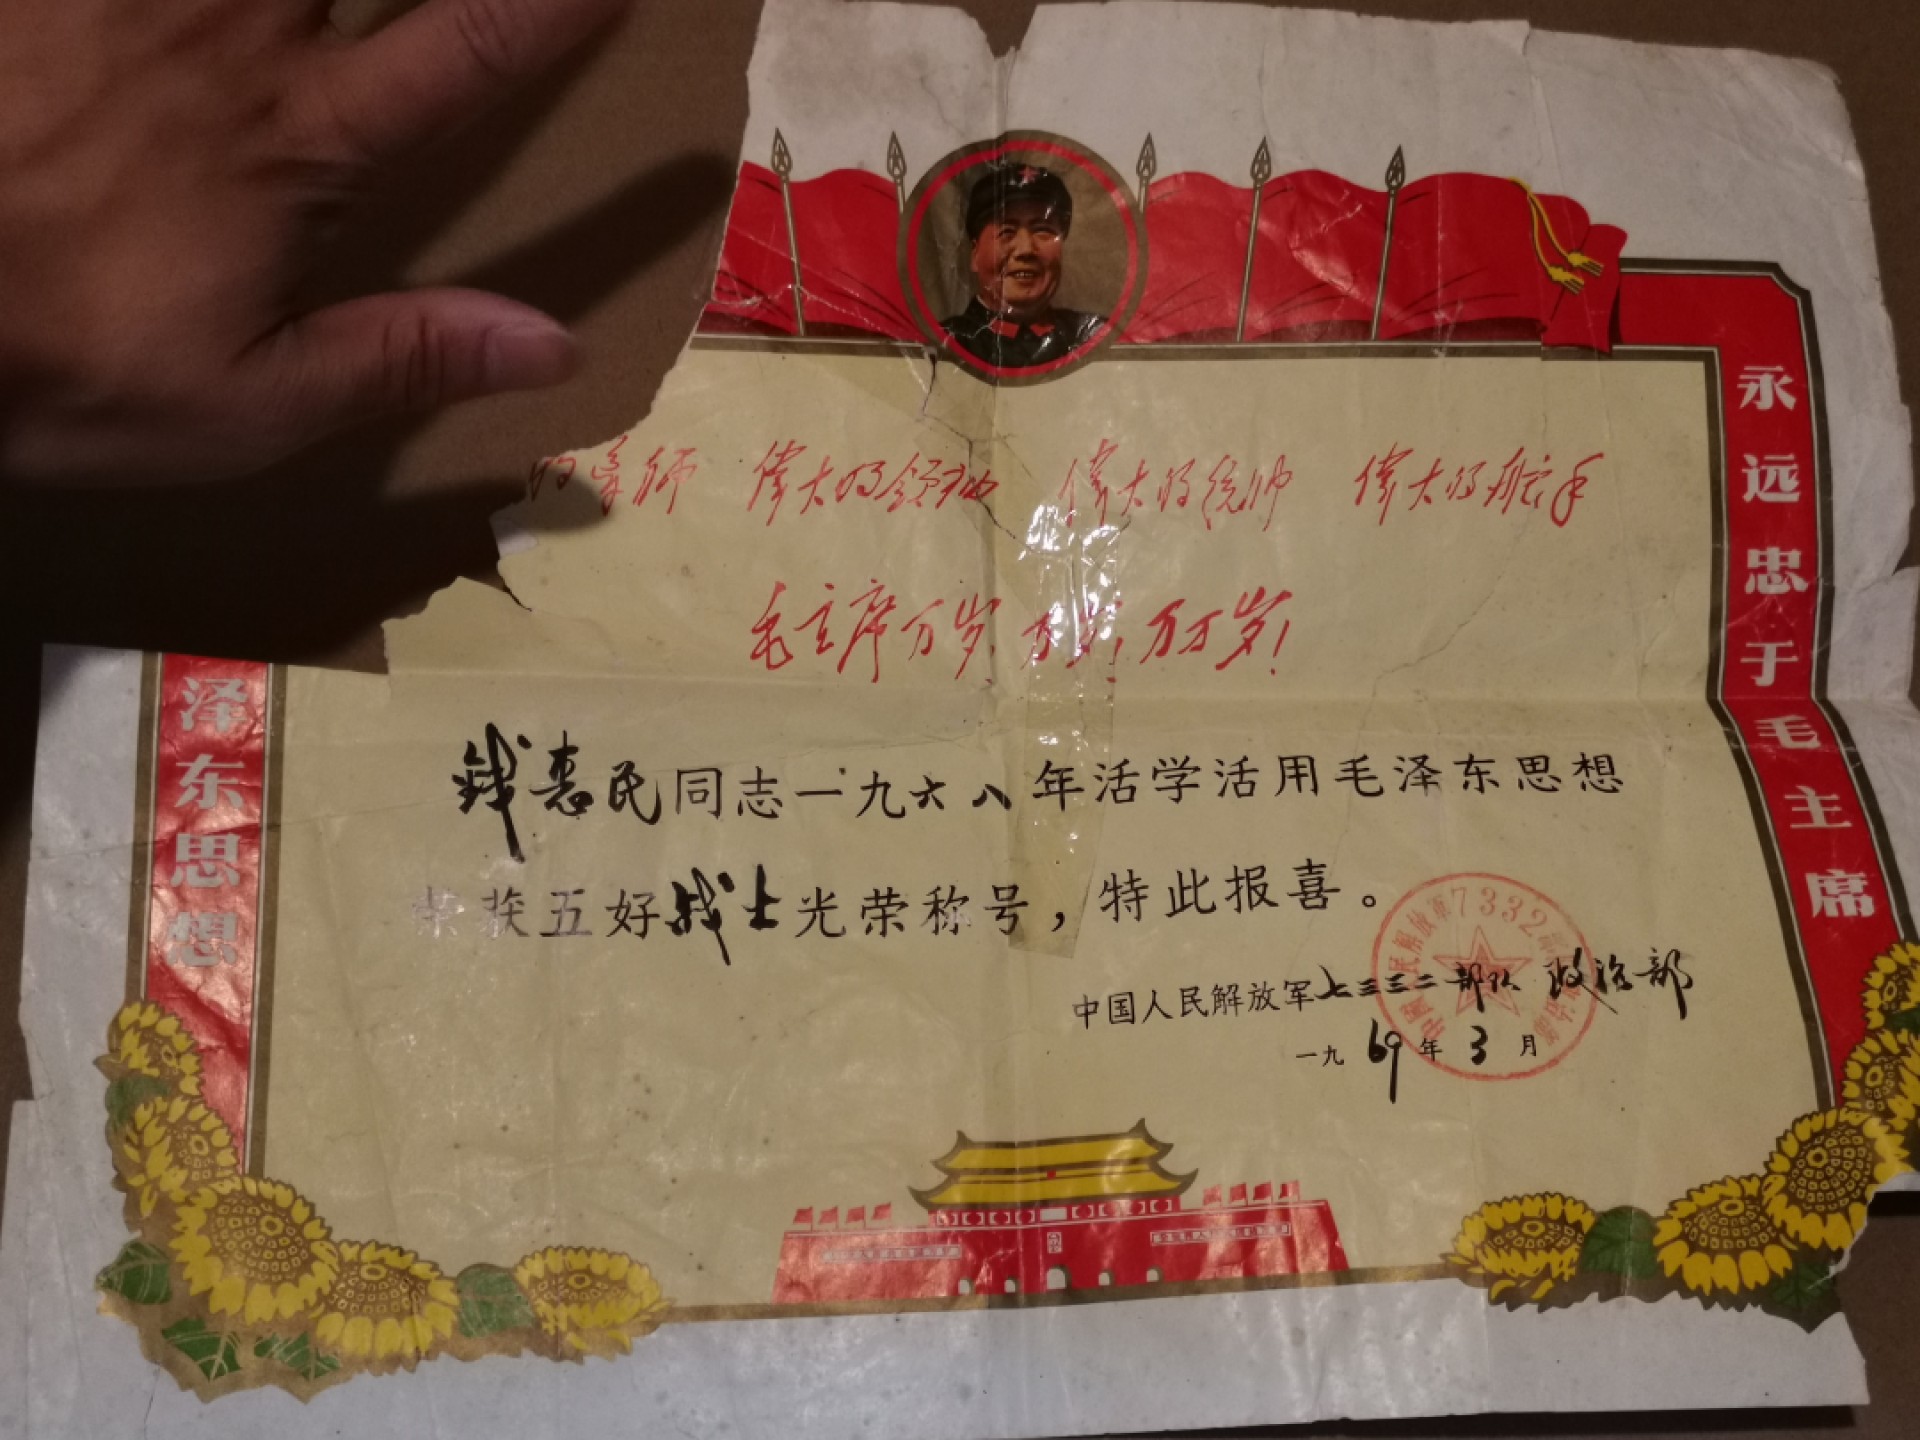 的导师 偉大的领袖 偉大的统帅 偉大的舵手
毛主席万岁！万岁！万万岁！
錢惠民同志一九六八年活学活用毛泽东思想
荣获五好战士光荣称号，特此报喜。
中国人民解放军七三三二部队政治部
一九69年3月
泽东思想
永远忠于毛主席
中国人民解放军7332部队